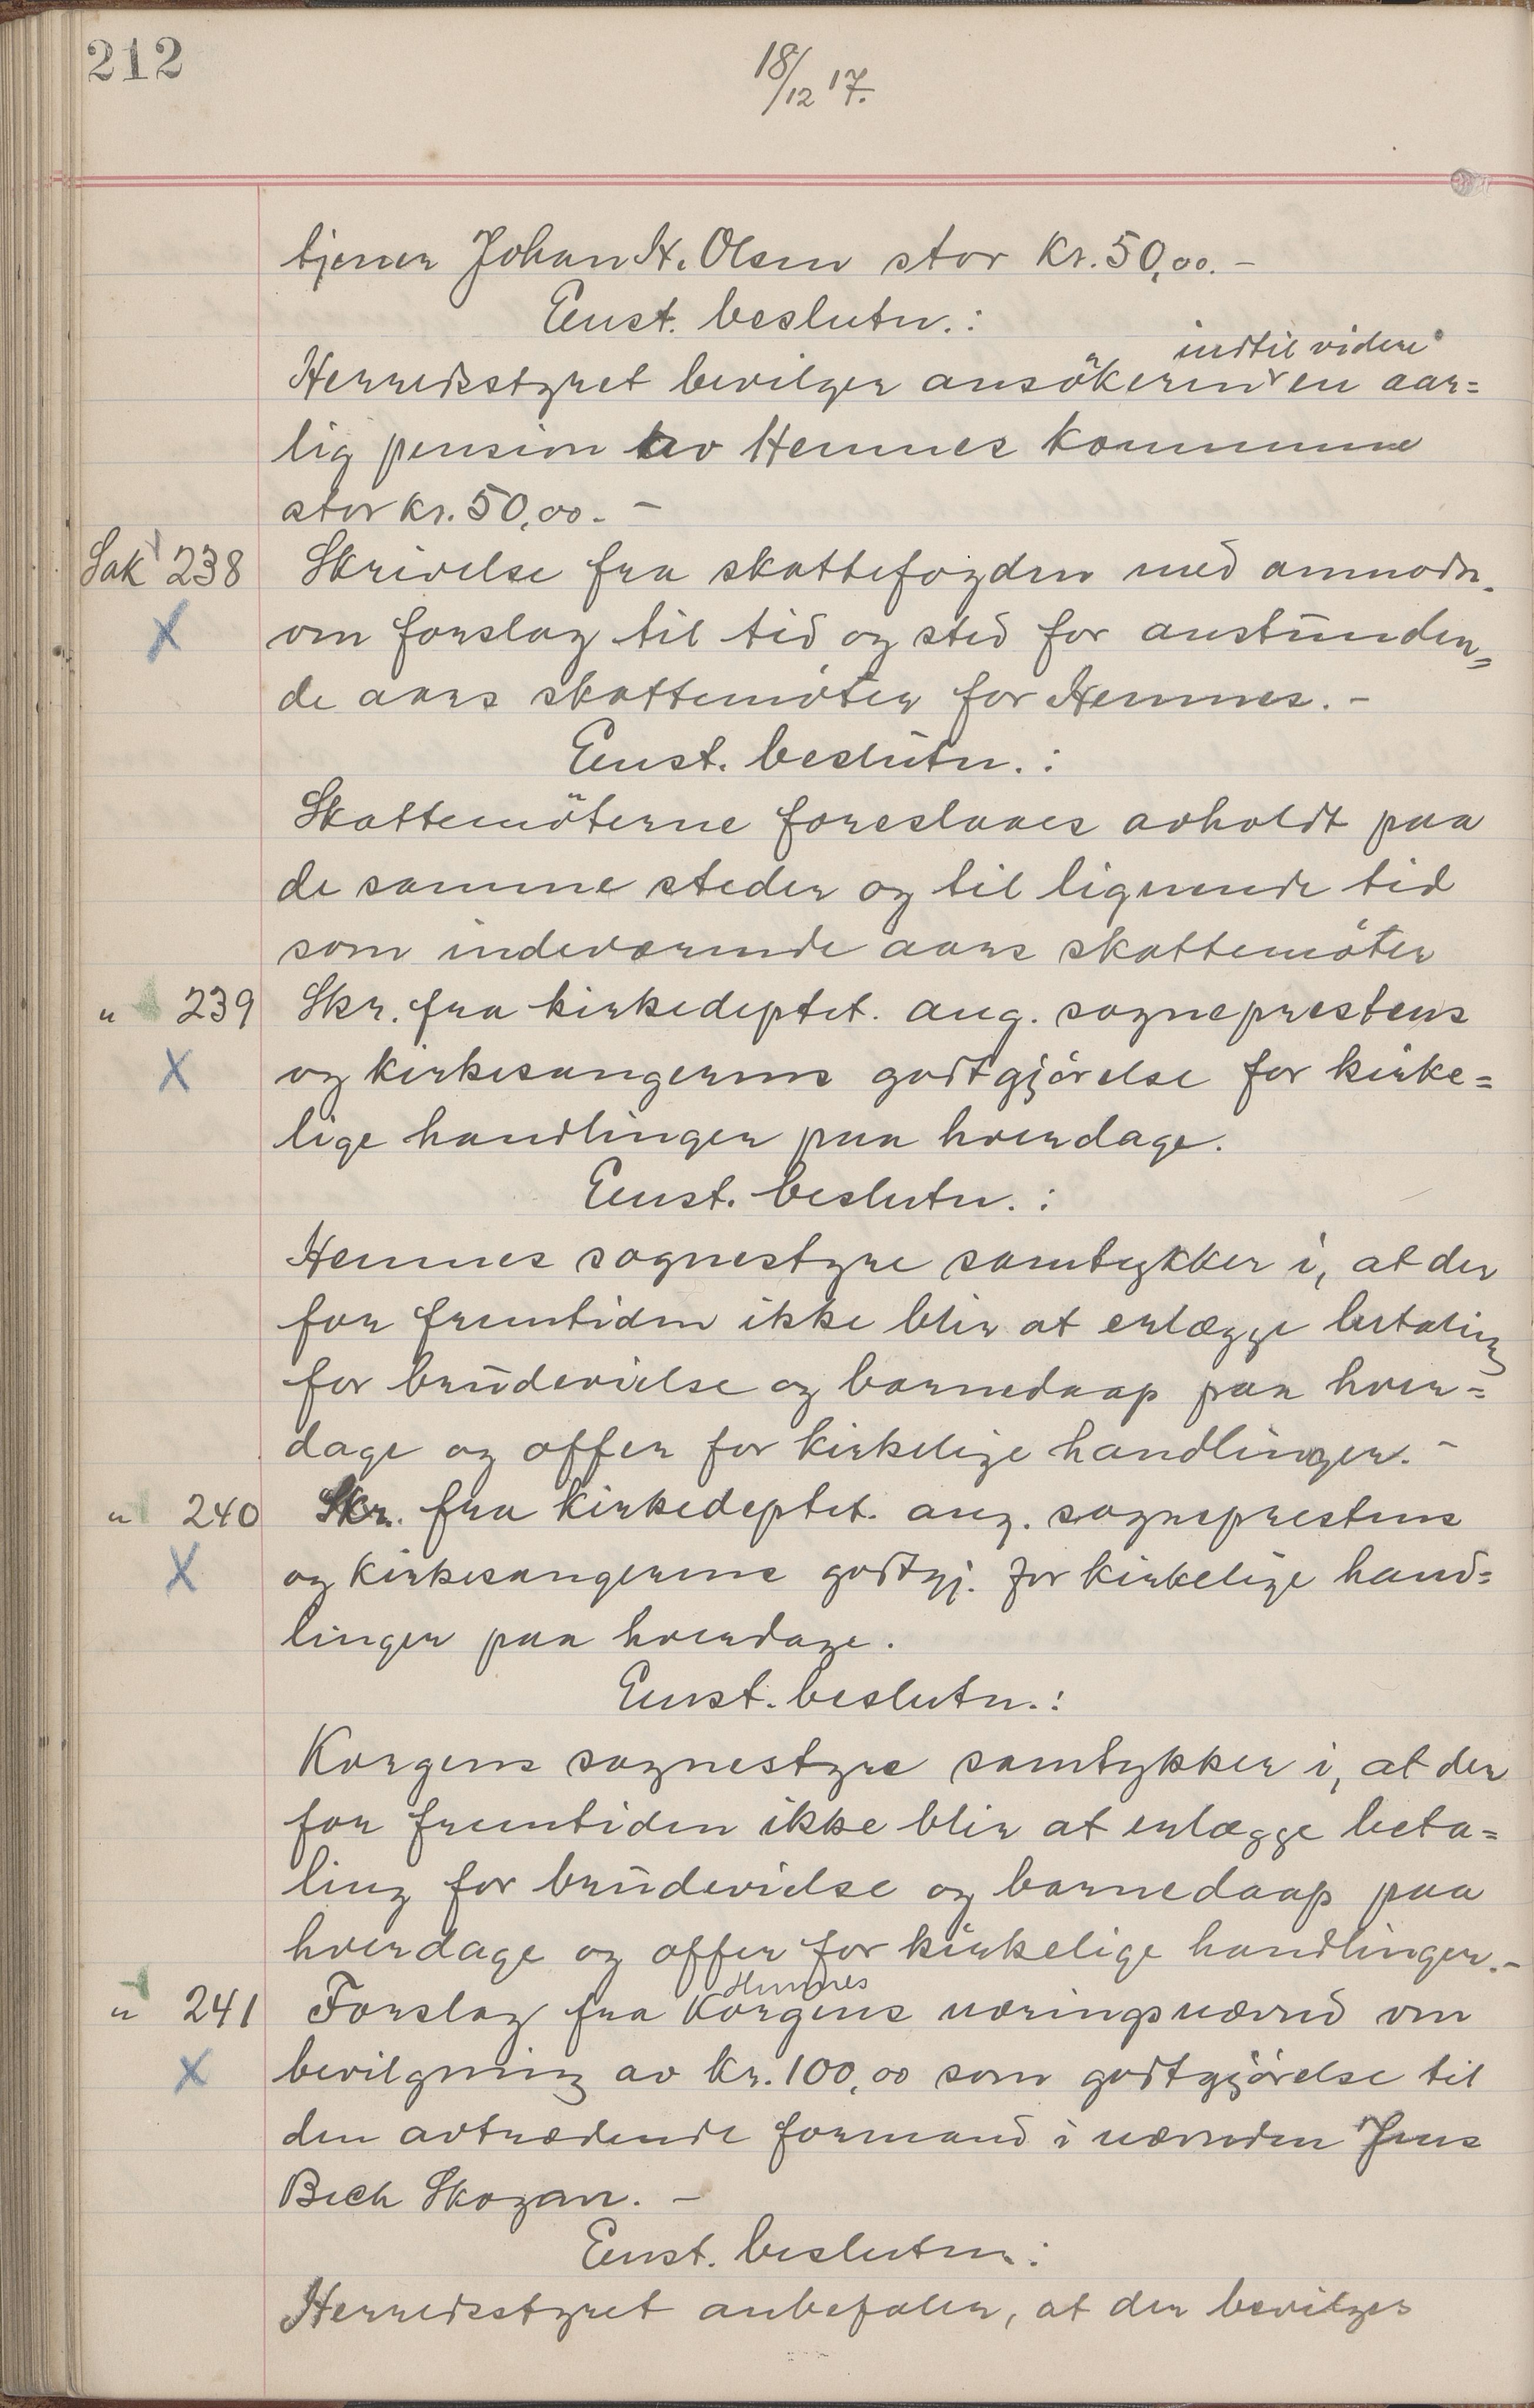 212
18/12 17.
tjener Johan H. Olsen stor kr. 50,00. –
Enst. beslutn.:
indtil videre
Herredsstyret bevilger ansökeren en aar=
lig pension av Hemnes kommune
stor kr. 50,00. –
Sak 238 Skrivelse fra skattefogden med anmodn.
X om forslag til tid og sted for anstunden=
de aars skattemöter for Hemnes. –
Enst. beslutn.:
Skattemöterne foreslaaes avholdt paa
de samme steder og til lignende tid
som indeværende aars skattemöter
" 239 Skr. fra kirkedeptet. ang. sogneprestens
X og kirkesangerens godtgjörelse for kirke=
lige handlinger paa hverdage.
Enst. beslutn.:
Hemnes sognestyre samtykker i, at der
for fremtiden ikke blir at erlægge betaling
for brudevielse og barnedaap paa hver=
dage og offer for kirkelige handlinger. –
" 240 Skr. fra kirkedeptet. ang. sogneprestens
X og kirkesangerens godtgj. for kirkelige hand=
linger paa hverdage.
Enst. beslutn.:
Korgens sognestyre samtykker i, at der
for fremtiden ikke blir at erlægge beta=
ling for brudevielse og barnedaap paa
hverdage og offer for kirkelige handlinger. –
Hemnes
" 241 Forslag fra Korgens næringsnævnd om
X bevilgning av kr. 100,00 som godtgjörelse til
den avtrædende formand i nævnden Jens
Bech Skogan. –
Enst. beslutn.:
Herredsstyret anbefaler, at der bevilges